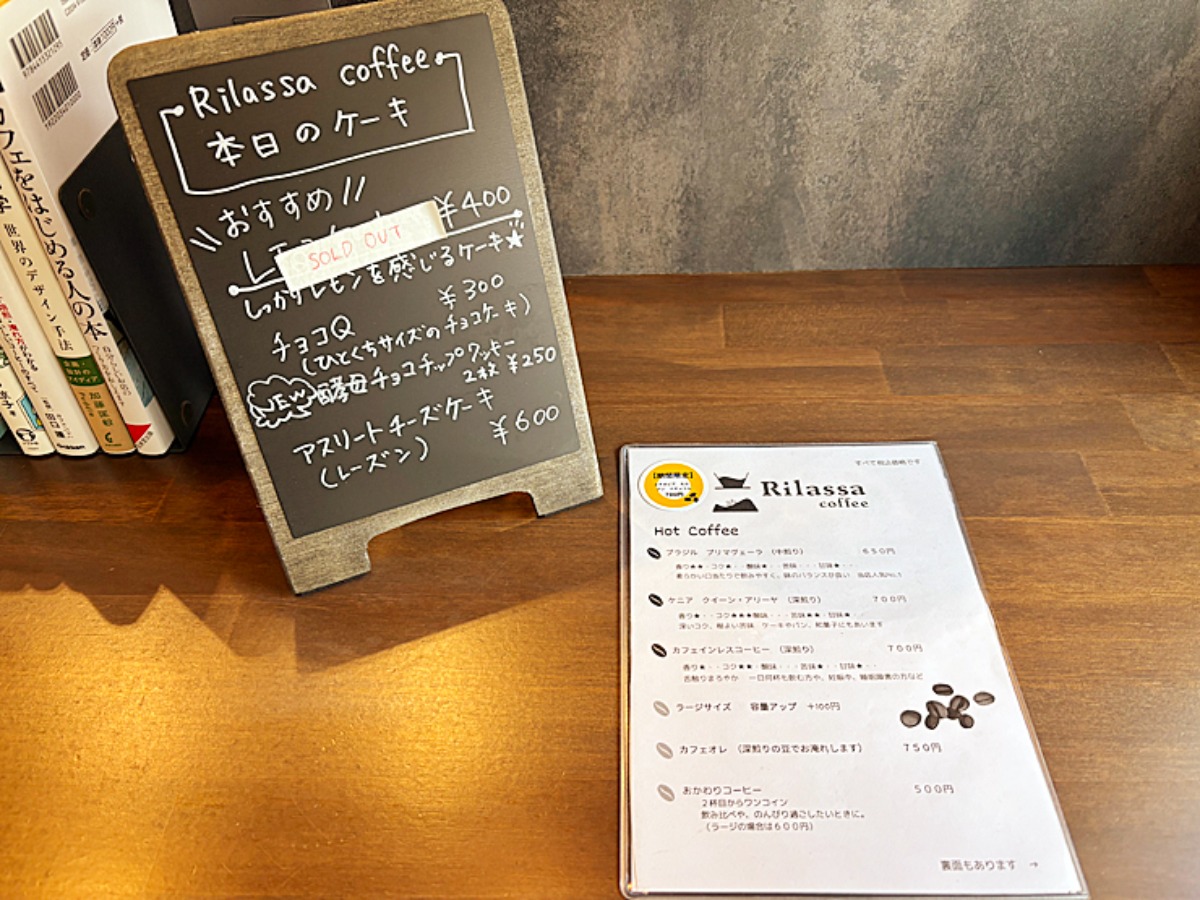 Rilassa coffee
本日のケーキ
おすすめ
¥400
SOLD OUT
しっかりレモンを感じるケーキ★
チョコQ ¥300
(ひとくちサイズのチョコケーキ)
NEW 酵母チョコチップクッキー
2枚 ¥250
アスリートチーズケーキ
(レーズン) ¥600
すべて税込価格です
【期間限定】
Rilassa
coffee
Hot Coffee
ブラジル プリマヴェーラ (中煎り) 650円
香り★★・コク★・・酸味★・・苦味・・・甘味★・・
柔らかい口当たりで飲みやすく、味のバランスが良い 当店人気No.1
ケニア クイーン・アリーヤ (深煎り) 700円
香り★・・コク★★★酸味・・・苦味★★・甘味★・・
深いコク、程よい苦味 ケーキやパン、和菓子にもあいます
カフェインレスコーヒー (深煎り) 700円
香り★・・コク★★・酸味・・・苦味★・・甘味★・・
舌触りまろやか 一日何杯も飲む方や、妊娠中、睡眠障害の方など
ラージサイズ 容量アップ +100円
カフェオレ (深煎りの豆でお淹れします) 750円
おかわりコーヒー 500円
2杯目からワンコイン
飲み比べや、のんびり過ごしたいときに。
(ラージの場合は600円)
裏面もあります →
カフェをはじめる人の本
世界のデザイン手法
9784415321295